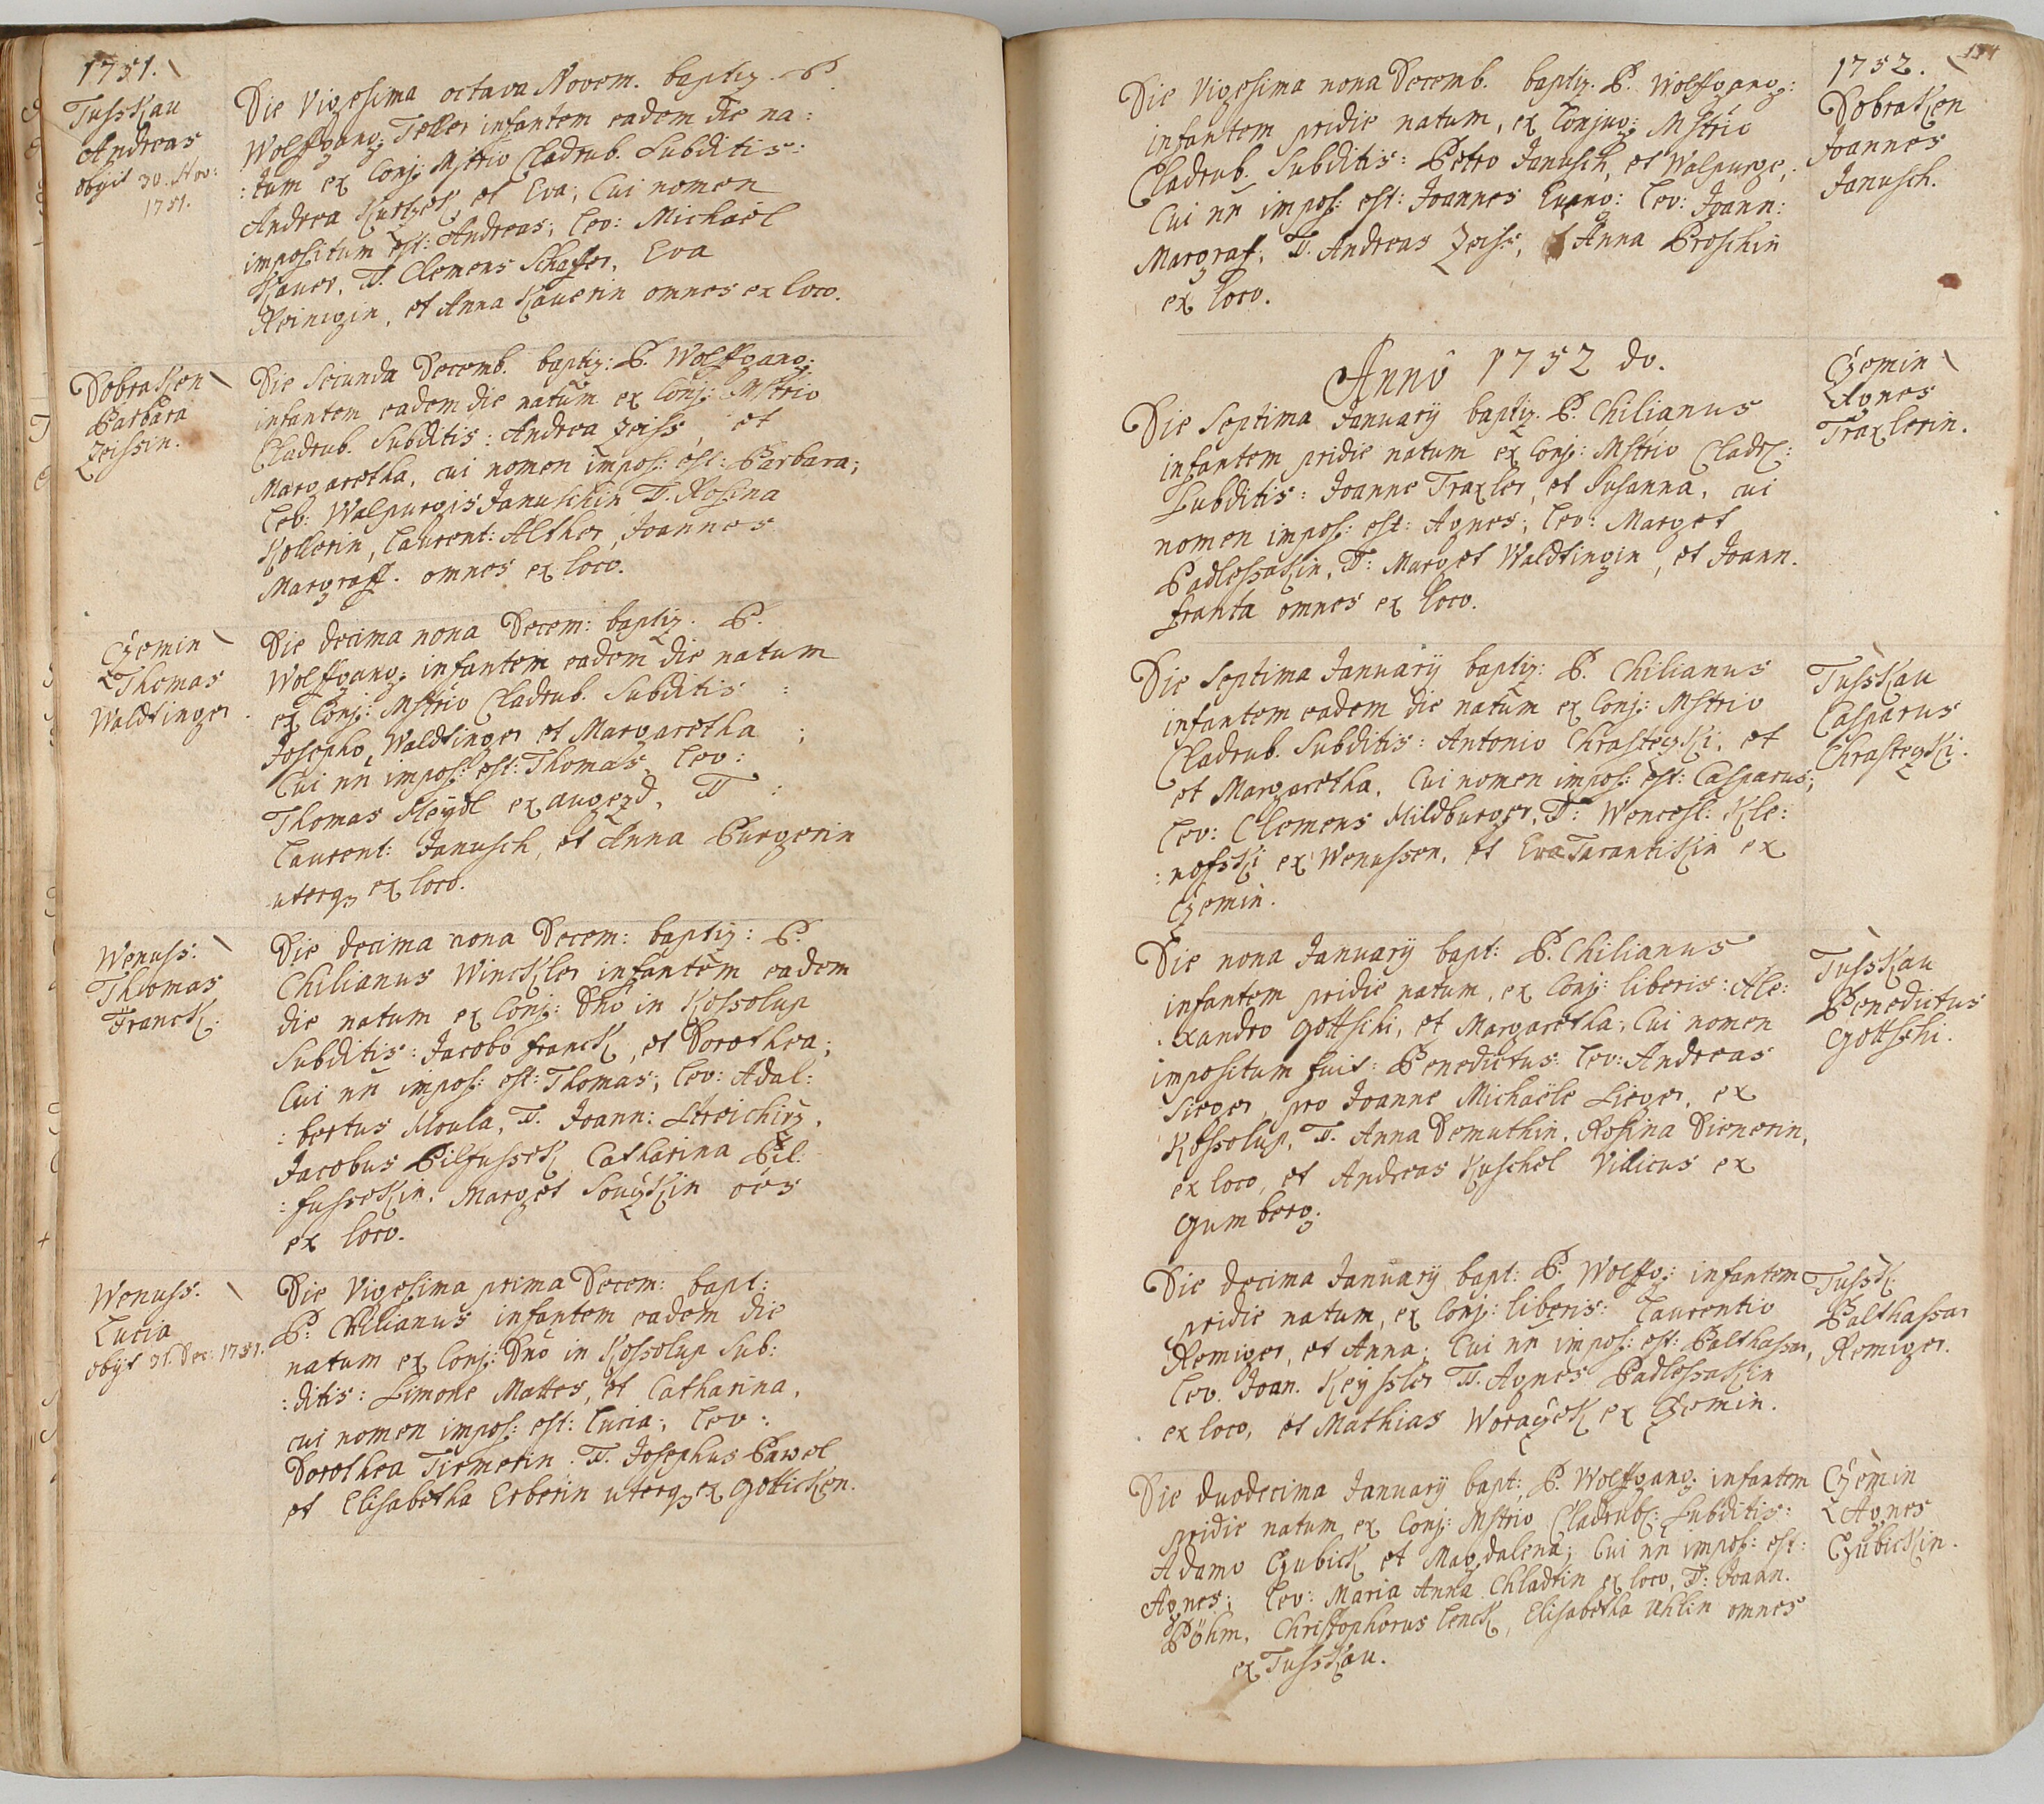 1751.
Tusskau
Andreas
obijt 30. Nov:
1751.
Die Vigesima octava Novem. baptiz. P.
Wolffgang: Teller infantem eadem die na:
:tum ex Conj: Mstrio Cladrub. Subditis:
Andrea Kutzek et Eva, Cui nomen
impositum est: Andreas; Lev: Michaël
Kauer, T. Clemens Schaffer, Eva
Reinigin, et Anna Kauerin omnes ex loco.
Dobraken
Barbara
Zeissin.
Die Secunda Decemb. baptiz: P. Wolffgang:
infantem eadem die natum ex Conj: Mstrio
Cladrub. Subditis: Andrea Zeiss, et
Margaretha, cui nomen impos: est: Barbara;
Lev: Walpurgis Januschin T. Rosina
Kollerin, Laurent: Älther, Joannes
Margraff. omnes ex loco.
Czemin
Thomas
Waldtinger.
Die decima nona Decem: baptiz. P.
Wolffgang: infantem eadem die natum
ex Conj: Mstrio Cladrub. Subditis:
Josepho Waldtinger et Margaretha;
Cui nn impos: est: Thomas, Lev:
Thomas Heydl ex augezd, T:
Laurent: Janusch, et Anna Purgerin
uterq3 ex loco.
Wenuss:
Thomas
Franck.
Die decima nona Decem: baptiz: P.
Chilianus Winckler infantem eadem
die natum ex Conj: Dno in Kossolup
Subditis: Jacobo Franck, et Dorothea;
Cui nn impos: est: Thomas; Lev: Adal:
:bertus Moula, T. Joann: Streichirz,
Jacobus Pilfussek, Catharina Pil:
:fussekin, Marget Souzkin oes
ex loco.
Wenuss.
Lucia
obijt 31. Dec: 1751.
Die Vigesima prima Decem: bapt:
P: Chilianus infantem eadem die
natum ex Conj: Dno in Kossolup Sub:
:ditis: Simone Mattes, et Catharina,
cui nomen impos: est: Lucia; Lev:
Dorothea Tiemerin. T. Josephus Pawel
et Elisabetha Erberin uterq3 ex Gotticken.
1752.
Dobraken
Joannes
Janusch.
Die Vigesima nona Decemb. baptiz. P. Wolffgang:
infantem pridie natum, ex Conjug: Mstrio
Cladrub. Subditis: Petro Janusch, et Walpurge,
Cui nn impos: est: Joannes Evang: Lev: Joann:
Margraf, T. Andreas Zeiss, Anna Proschin
ex loco.
Anno 1752 do.
Czemin
Agnes
Traxlerin.
Die Septima January baptiz. P. Chilianus
infantem pridie natum ex Conj: Mstrio Cladr:
Subditis: Joanne Traxler, et Susanna, cui
nomen impos: est: Agnes; Lev: Marget
Padlessakin, T: Marget Waldtingin, et Joann.
Franta omnes ex loco.
Tusskau
Casparus
Chrastezki.
Die Septima January baptiz: P. Chilianus
infantem eadem die natum ex Conj: Mstrio
Cladrub. Subditis: Antonio Chrastezki, et
et Margaretha, Cui nomen impos: est: Casparus;
Lev: Clemens Mildburger, T: Wencesl: Kle:
:nofski ex Wenussen, et Eva Tarantikin ex
Czemin.
Tusskau
Benedictus
Gottschi.
Die nona January bapt: P. Chilianus
infantem pridie natum, ex Conj: liberis: Ale:
:xandro Gottschi, et Margaretha, Cui nomen
impositum fuit: Benedictus: Lev: Andreas
Sieger, pro Joanne Michaële Sieger, ex
Kossolup, T. Anna Demuthin, Rosina Dienerin,
ex loco, et Andreas Kuschel Villicus ex
Gumberg.
Tussk:
Balthassar
Remiger.
Die decima January bapt: P. Wolffg: infantem
pridie natum, ex Conj: liberis: Laurentio
Remiger, et Anna; Cui nn impos: est: Balthassar,
Lev. Joan. Keyssler T. Agnes Padlessakin
ex loco, et Mathias Worazek ex Czemin.
Czemin
Agnes
Czubickin.
Die duodecima January bapt: P. Wolffgang: infantem
pridie natum ex Conj: Mstrio Cladrub: Subditis:
Adamo Czubick et Magdalena; Cui nn impos: est:
Agnes; Lev: Maria Anna Chladtin ex loco, T: Joann.
Böhm, Christophorus Lenck, Elisabetha Uhlin omnes
ex Tusskau.